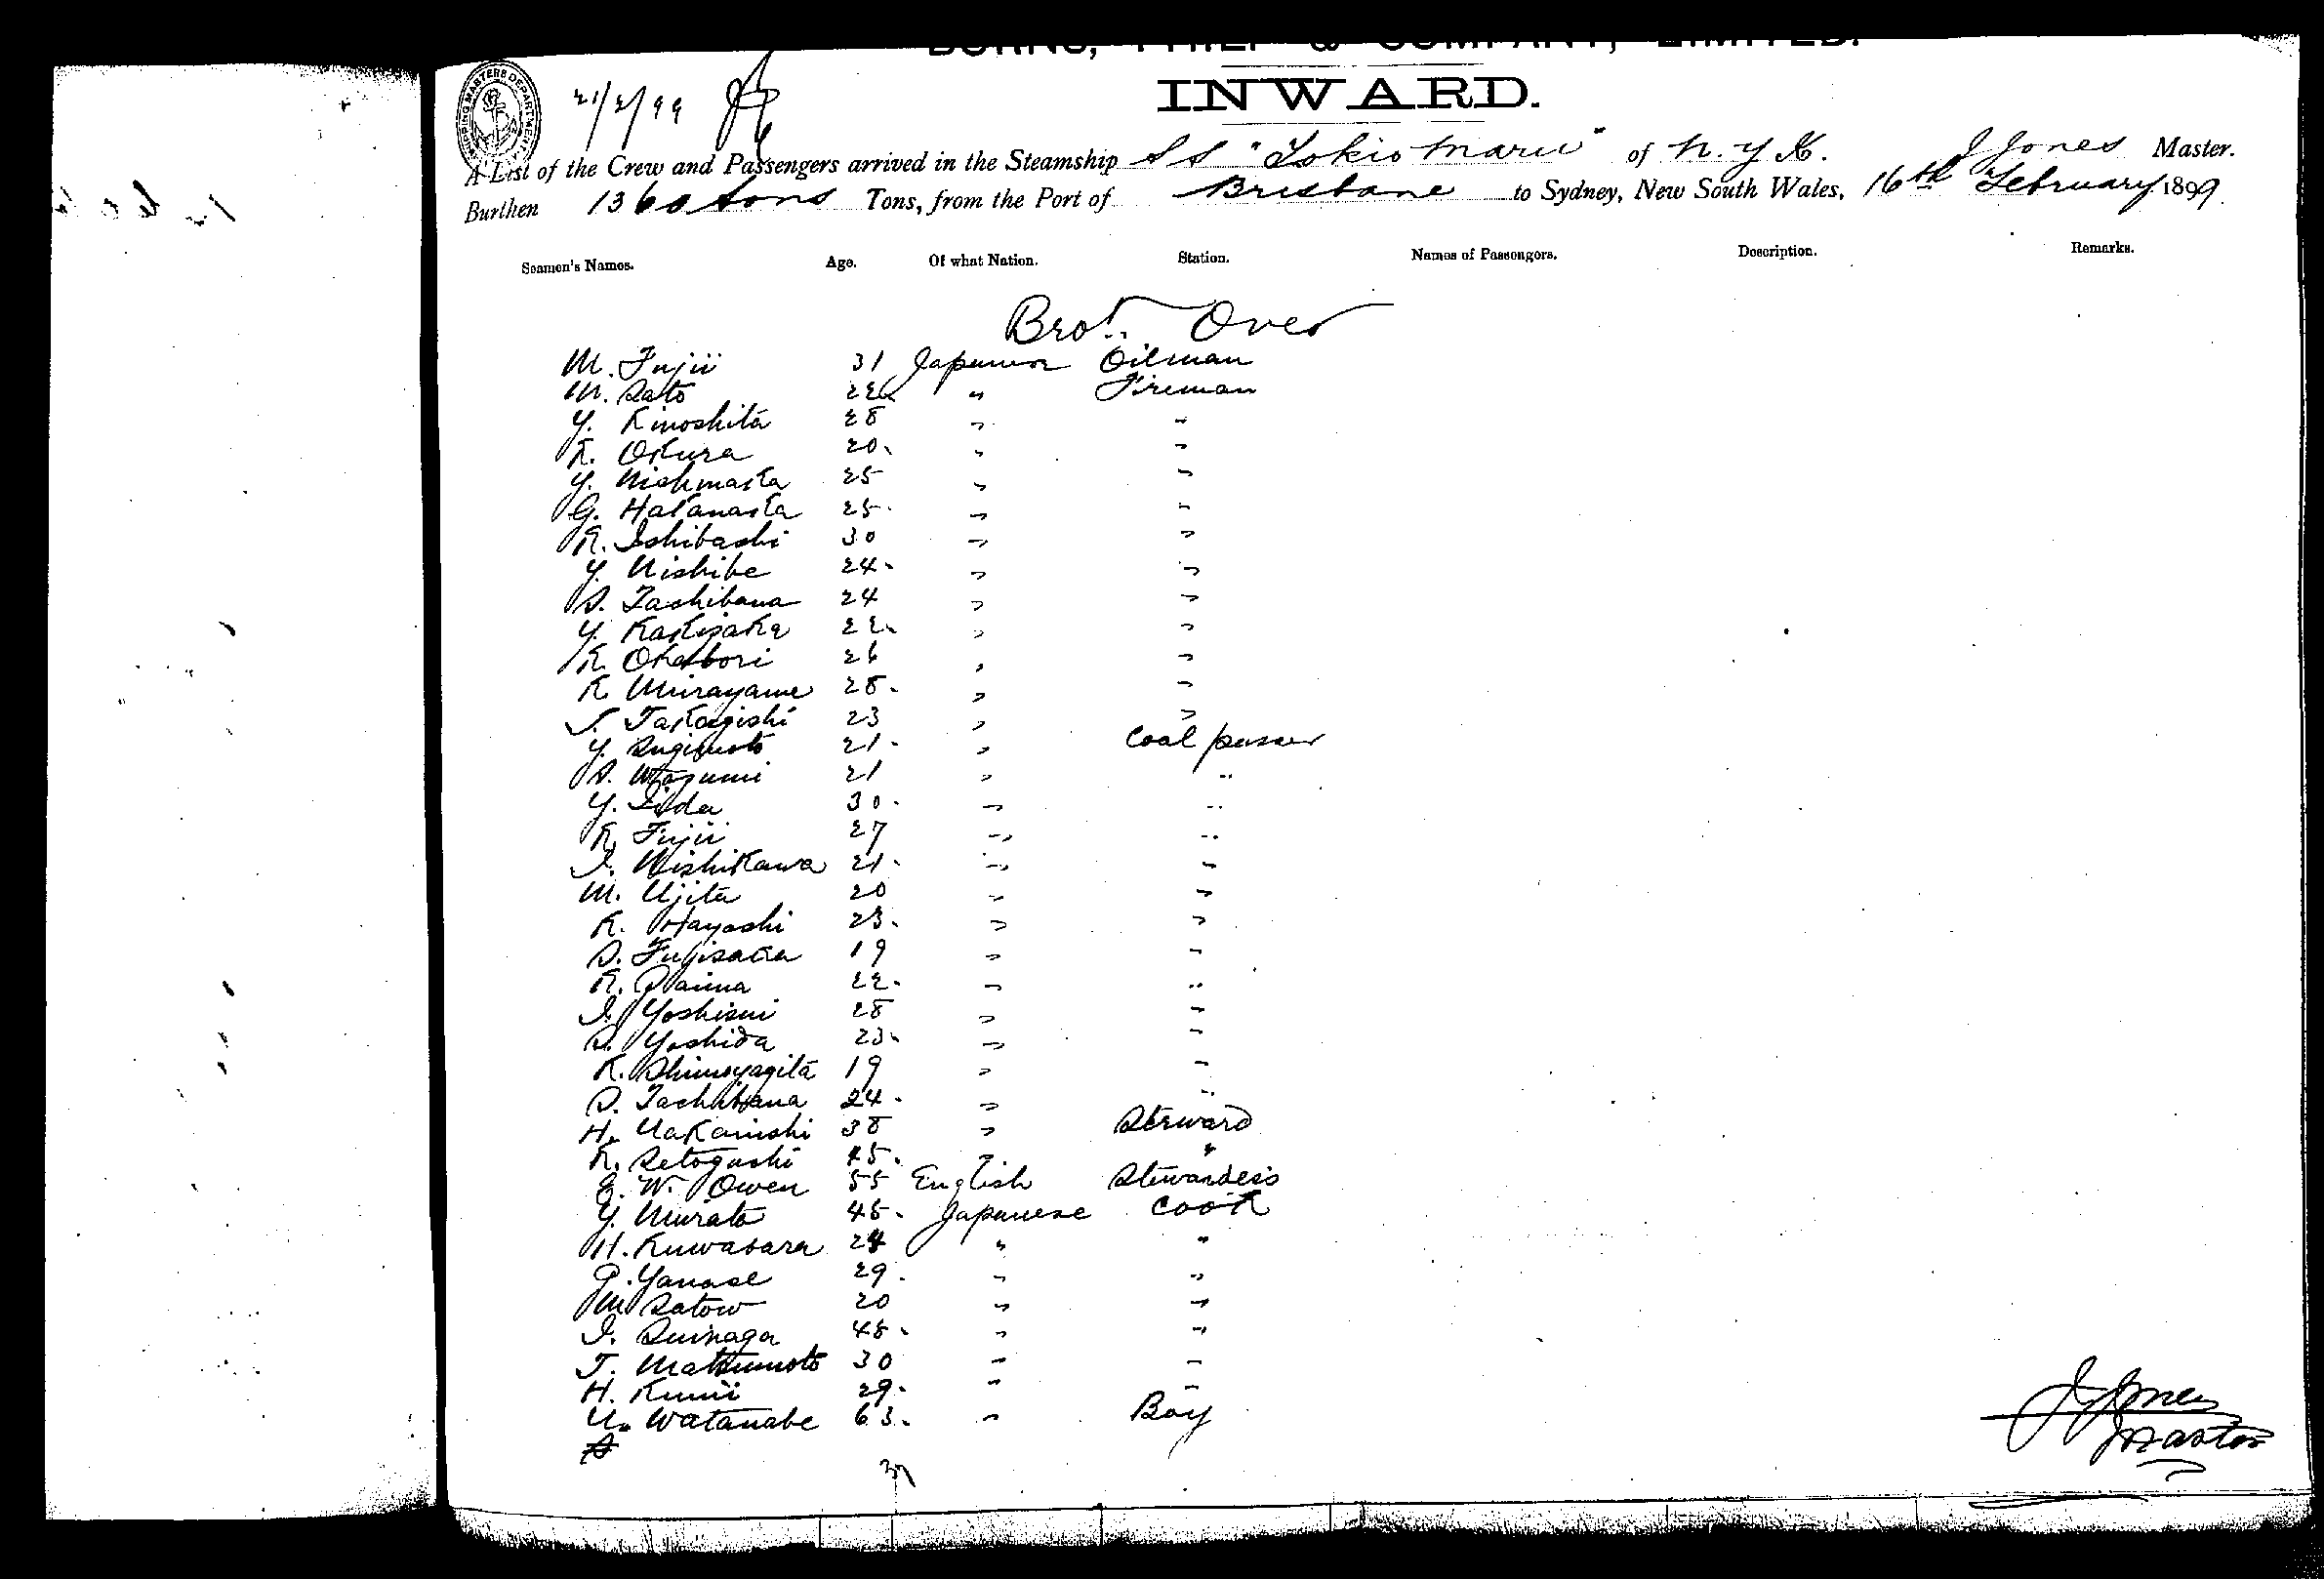 BURNS, PHILP & COMPANY, LIMITED.
INWARD.
SHIPPING MASTERS DEPARTMENT
21/2/99
A List of the Crew and Passengers arrived in the Steamship S S "Tokio Maru" of N. Y. K. J Jones Master.
Burthen 1360 tons Tons, from the Port of Brisbane to Sydney, New South Wales, 16th February 1899
Seamen's Names. Age. Of what Nation. Station. Names of Passengers. Description. Remarks.
Brot. Over
M. Fujii 31 Japanese Oilman
M. Sato 22 " Fireman
Y. Kinoshita 28 " "
K. Okura 20. " "
Y. 25 " "
G. Hatanaka 25. " "
K. Ishibashi 30 " "
Y. Nishibe 24. " "
S. Tachibana 24 " "
Y. Kakizaka 22. " "
K. Okabori 26 " "
K. Murayama 28. " "
S. Takagishi 23 " "
Y. Sugimoto 21. " Coal passer
S. 21 " "
Y. Iida 30. " "
K. Fujii 27 " "
I. Nishikawa 21. " "
M. Ujita 20 " "
K. Hayashi 23. " "
S. Fujisaka 19 " "
K. 22. " "
I. Yoshizui 28 " "
S. Yoshida 23. " "
K. Shimoyagita 19 " "
S. Tachibana 24. " "
H. Nakanishi 38 " Steward
K. Setoguchi 45. " "
E. W. Owen 55 English Stewardess
Y. Murata 45. Japanese Cook
H. Kuwabara 24 " "
G. Yanase 29. " "
M Satow 20 " "
I. Suinaga 48. " "
T. Matsumoto 30 " "
H. Kunii 29. " "
U. Watanabe 63. " Boy
37
J Jones
Master